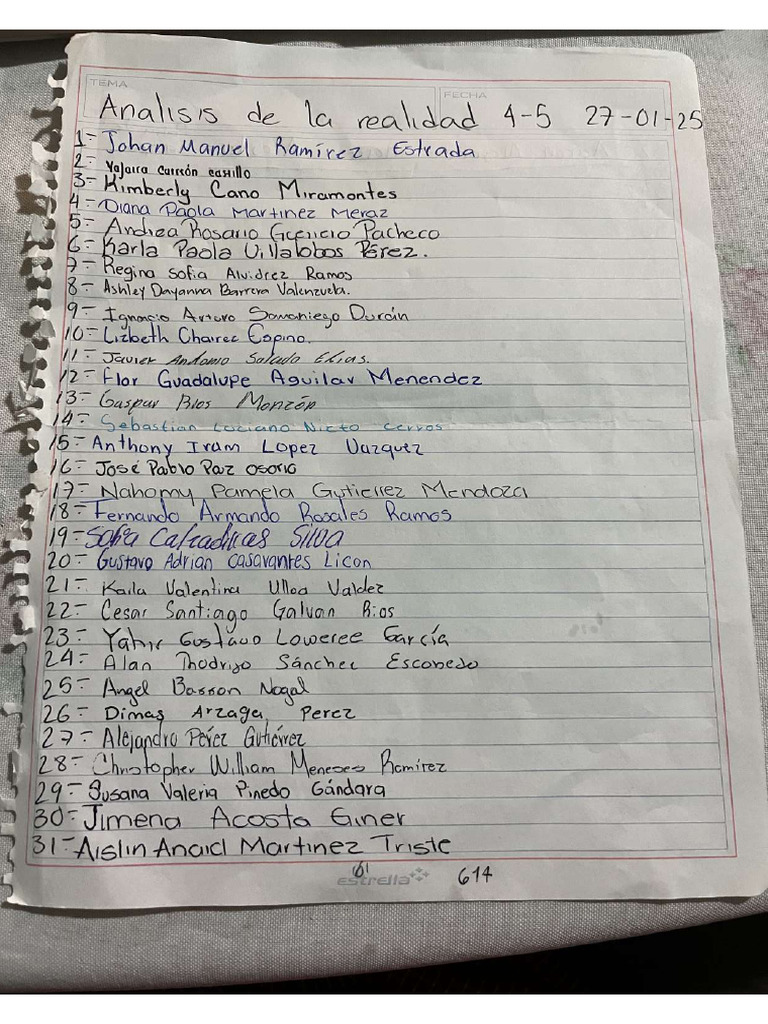 TEMA
FECHA
Analisis de la realidad 4-5 27-01-25
1- Johan Manuel Ramírez Estrada
2- Yajaira carreón castillo
3- Kimberly Cano Miramontes
4- Diana Paola Martinez Meraz
5- Andrea Rosario Guerrero Pacheco
6- Karla Paola Villalobos Pérez.
7- Regina Sofia Alvidrez Ramos
8- Ashley Dayanna Barrera Valenzuela.
9- Ignacio Arturo Samaniego Durán
10- Lizbeth Chairez Espino.
11- Javier Antonio Salado Elias.
12- Flor Guadalupe Aguilar Menendez
13- Gaspar Rios Monzón
14- Sebastian Luciano Nieto Cerros
15- Anthony Iram Lopez Vazquez
16- José Pablo Paz Osorio
17- Nahomy Pamela Gutierrez Mendoza
18- Fernando Armando Rosales Ramos
19- Sofia Silva
20- Gustavo Adrian Casavantes Licon
21- Karla Valentina Ulloa Valdez
22- Cesar Santiago Galvan Rios
23- Yahir Gustavo Loweree García
24- Alan Rhodrigo Sánchez Escobedo
25- Angel Basson Nogal
26- Dimas Arzaga Perez
27- Alejandro Pérez Gutiérrez
28- Christopher William Meneses Ramírez
29- Susana Valeria Pinedo Gándara
30- Jimena Acosta Giner
31- Aislin Anaid Martinez Triste
estrella 614